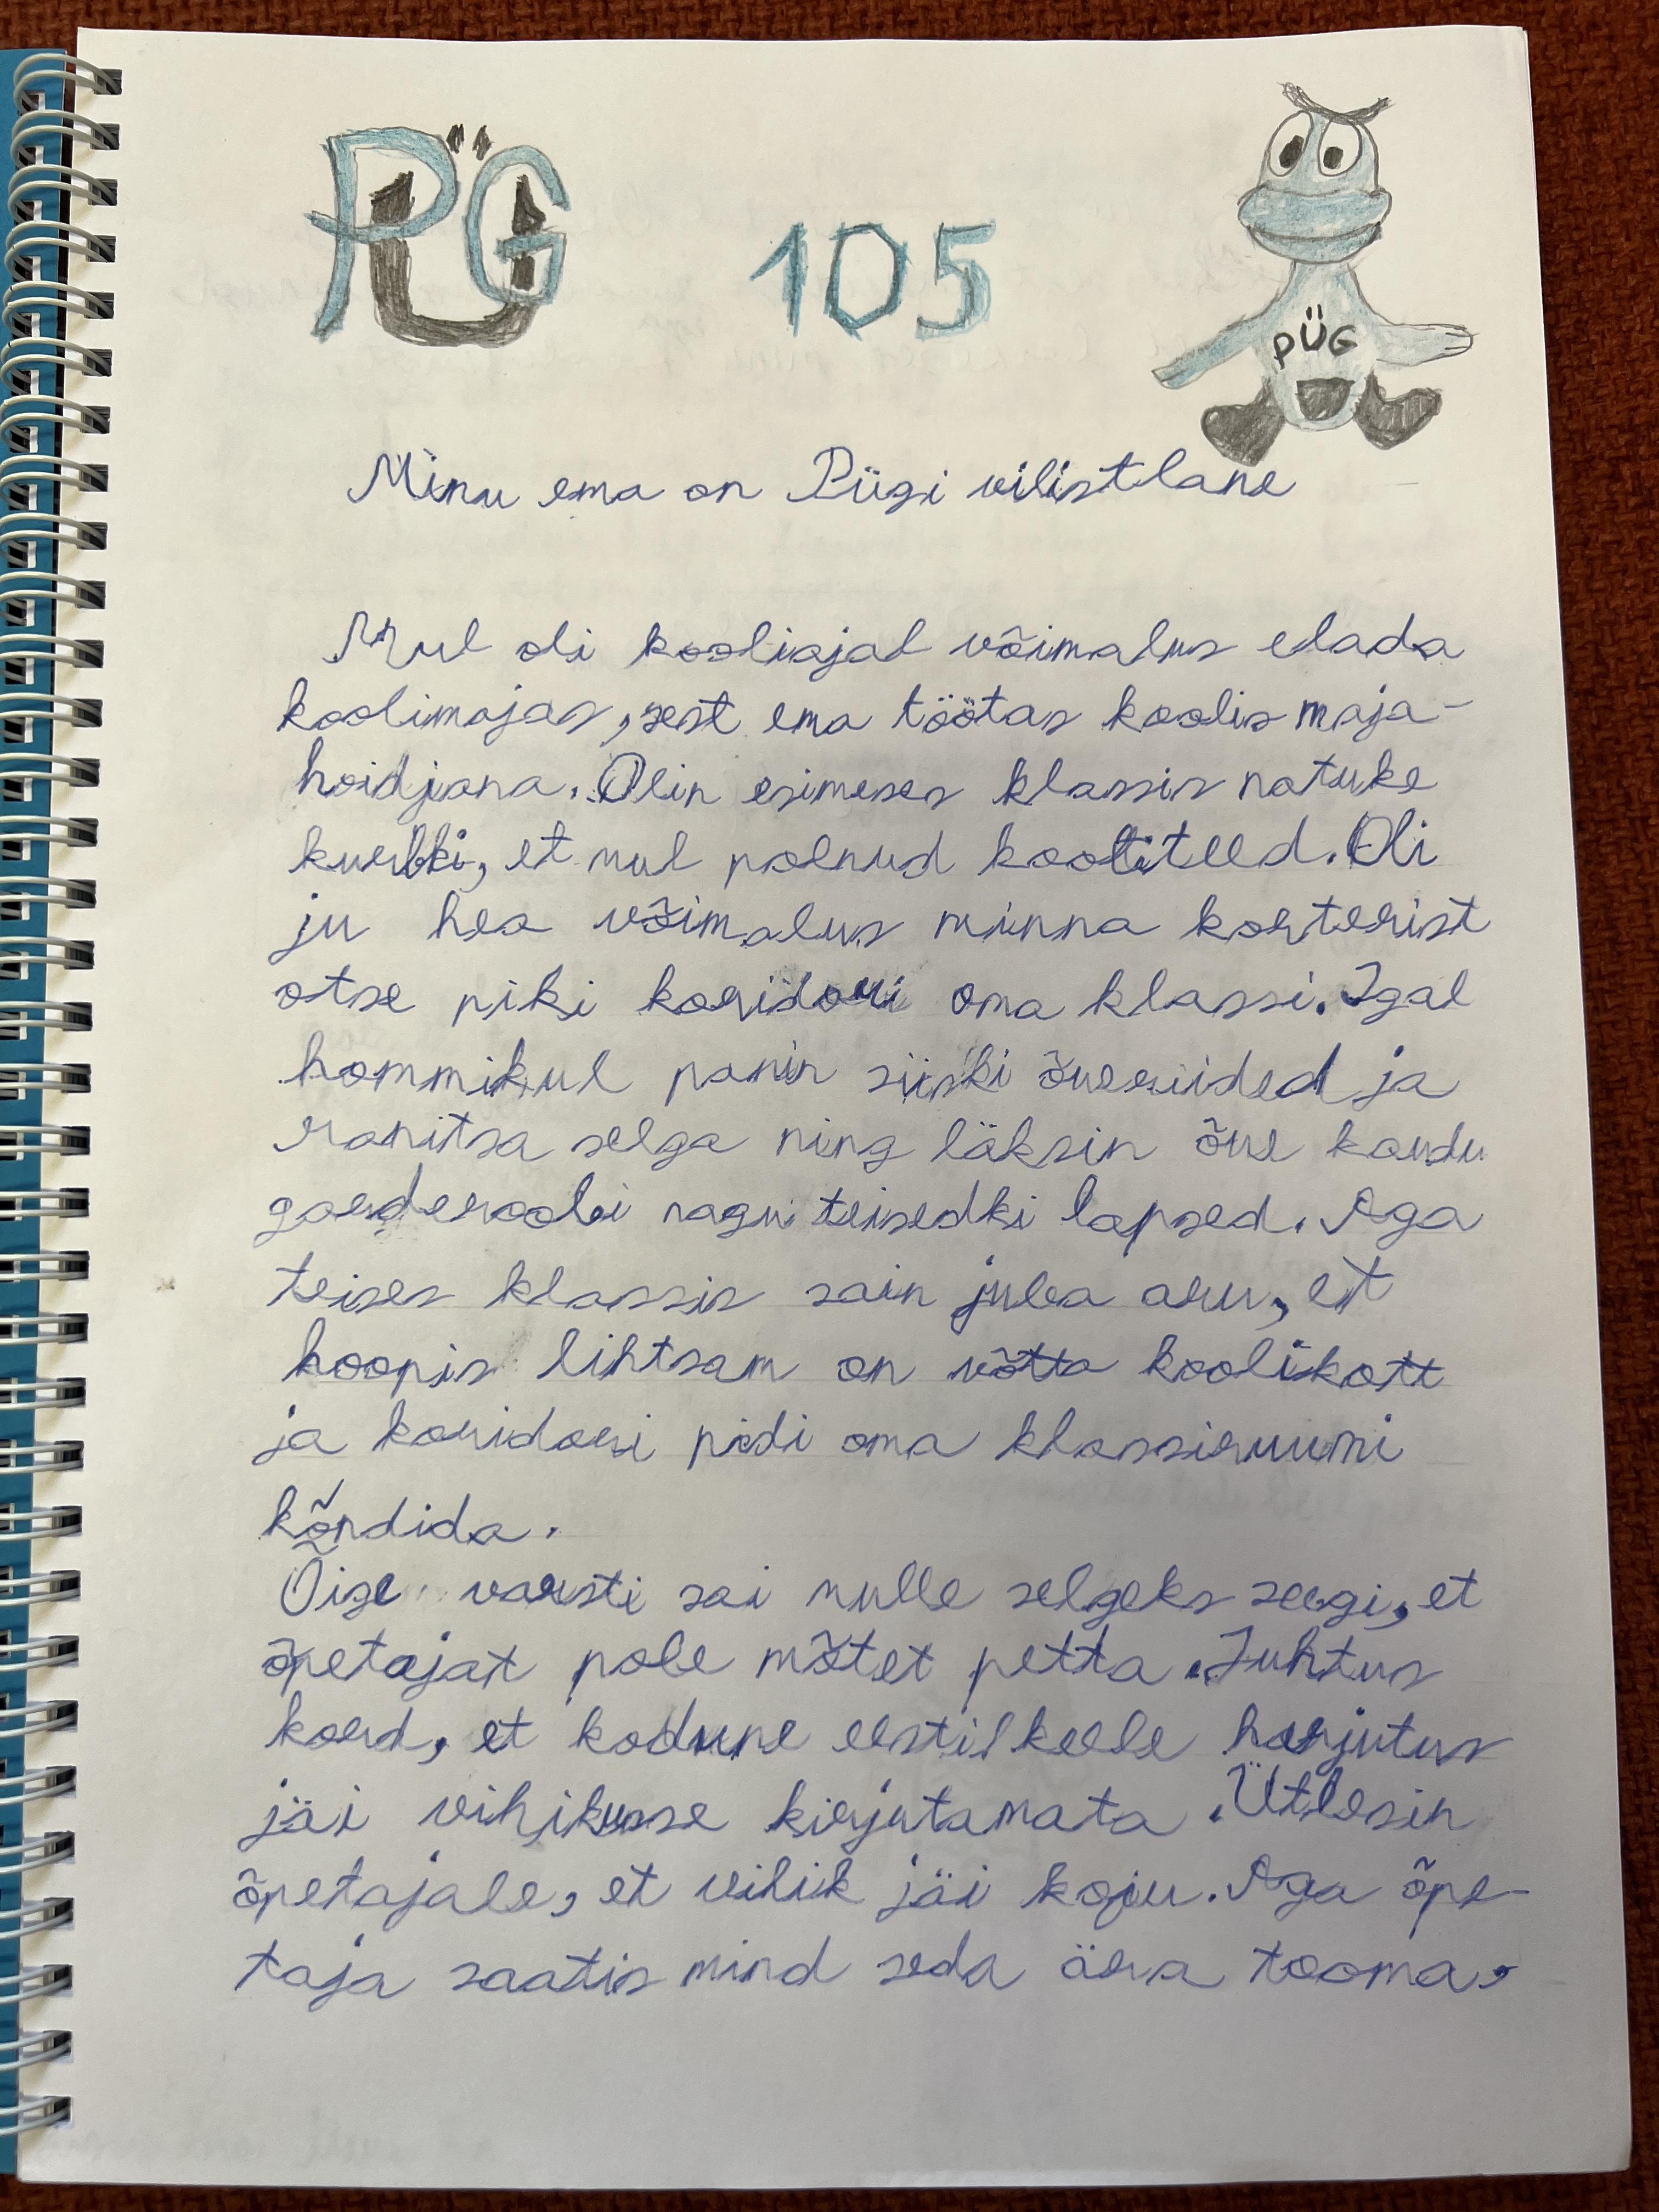 PÜG
105
PÜG
Minu ema on Pügi vilistlane
Mul oli kooliajal võimalus elada
koolimajas, sest ema töötas koolis maja-
hoidjana. Olin esimeses klassis natuke
kurbki, et mul polnud kooliteed. Oli
ju hea võimalus minna korterist
otse piki koridori oma klassi. Igal
hommikul panin siiski õueriided ja
ranitsa selga ning läksin õue kaudu
garderoobi nagu teisedki lapsed. Aga
teises klassis sain juba aru, et
hoopis lihtsam on võtta koolikott
ja koridori pidi oma klassiruumi
kõndida.
Õige varsti sai mulle selgeks seegi, et
õpetajat pole mõtet petta. Juhtus
kord, et kodune eesti keele harjutus
jäi vihikusse kirjutamata. Ütlesin
õpetajale, et vihik jäi koju. Aga õpe-
taja saatis mind seda ära tooma.